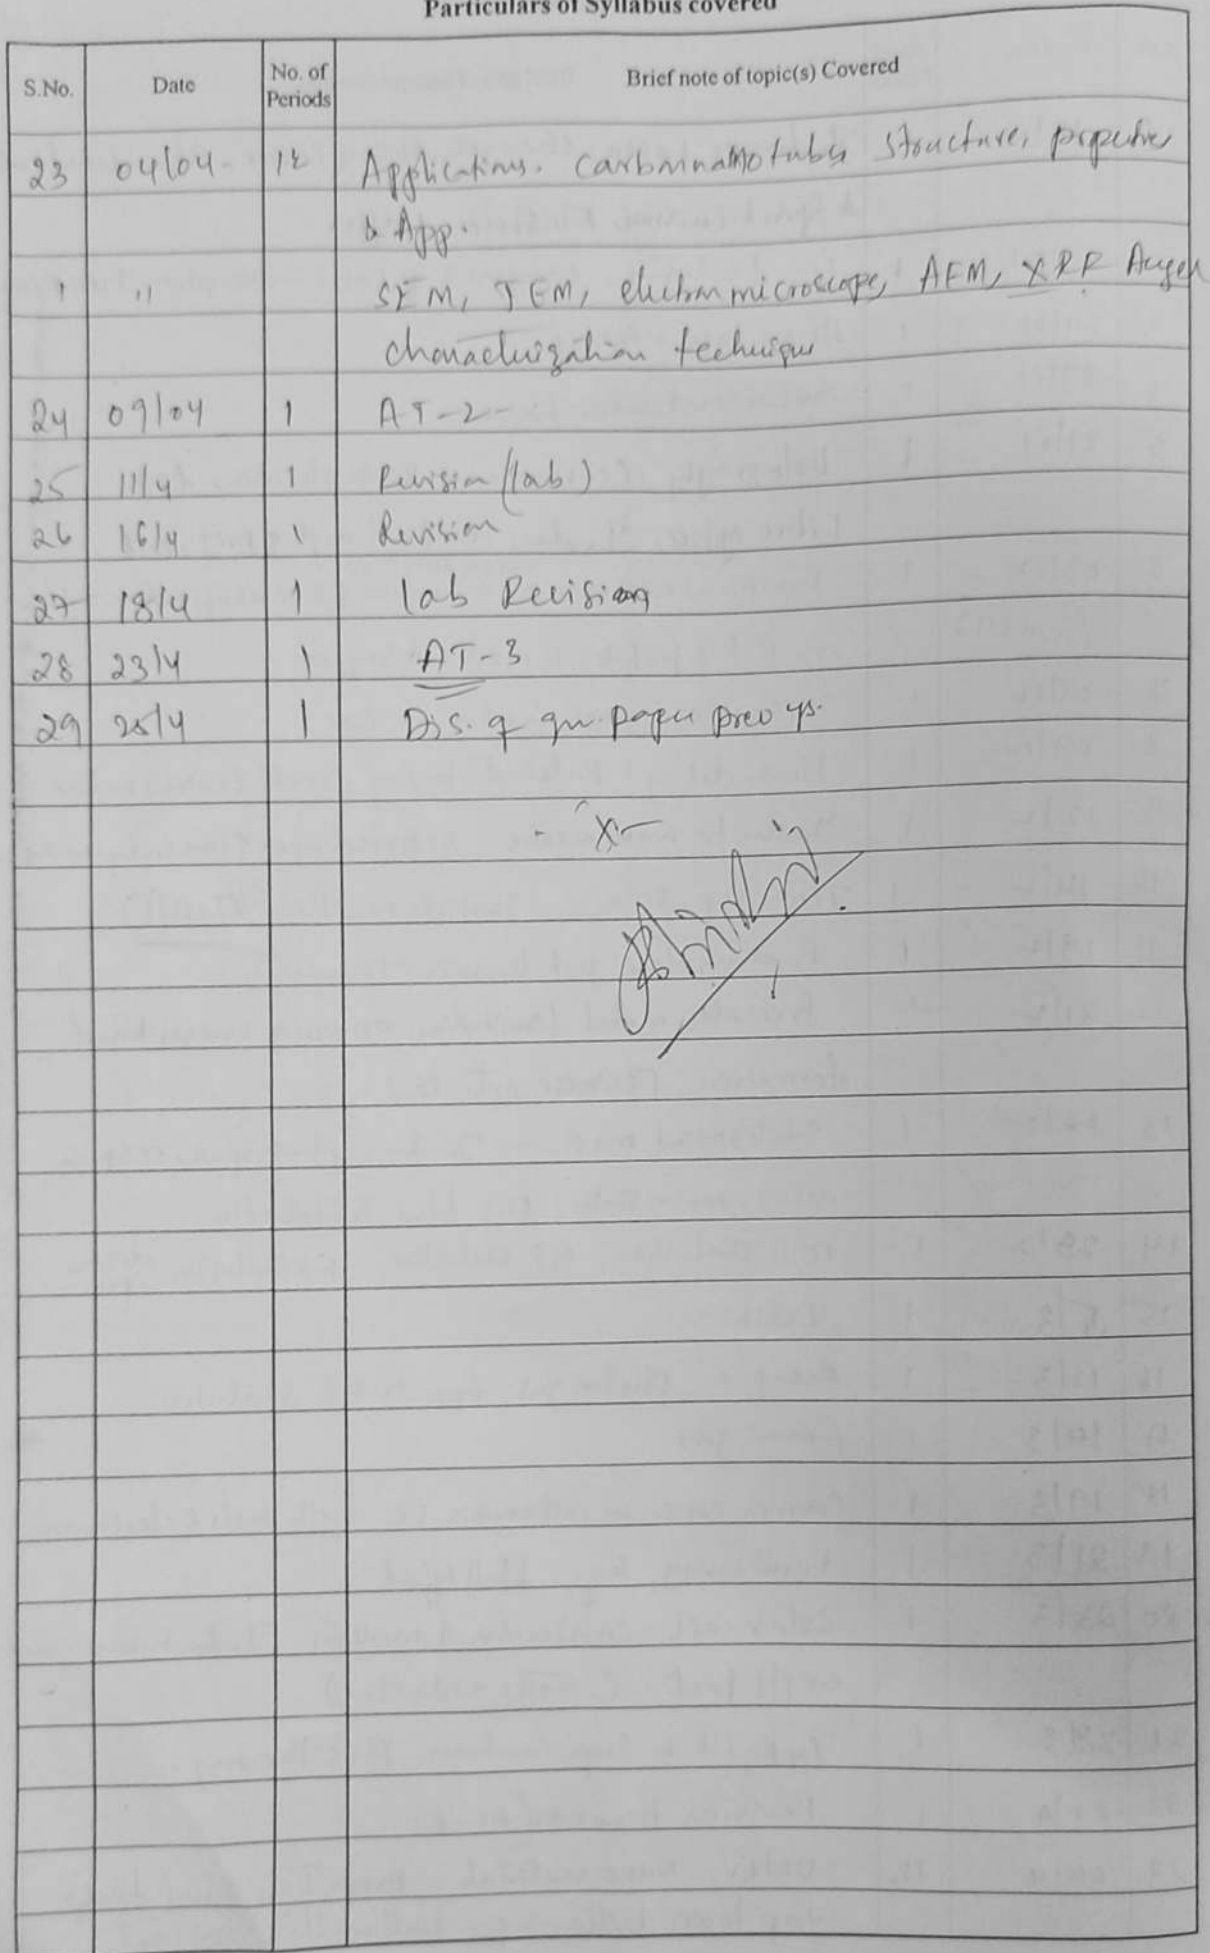 Particulars of Syllabus covered
S.No. Date No. of Periods Brief note of topic(s) Covered
23 04/04 Applications. Carbonnanotubes structure, properties
& App.
" SEM, TEM, electron microscope, AFM, XRF Auger
characterization technique
24 09/04 1 AT-2
25 11/4 1 Revision (lab)
26 16/4 1 Revision
27 18/4 1 lab Revision
28 23/4 1 AT-3
29 25/4 1 Dis. of qu. paper prev ys.
- x -